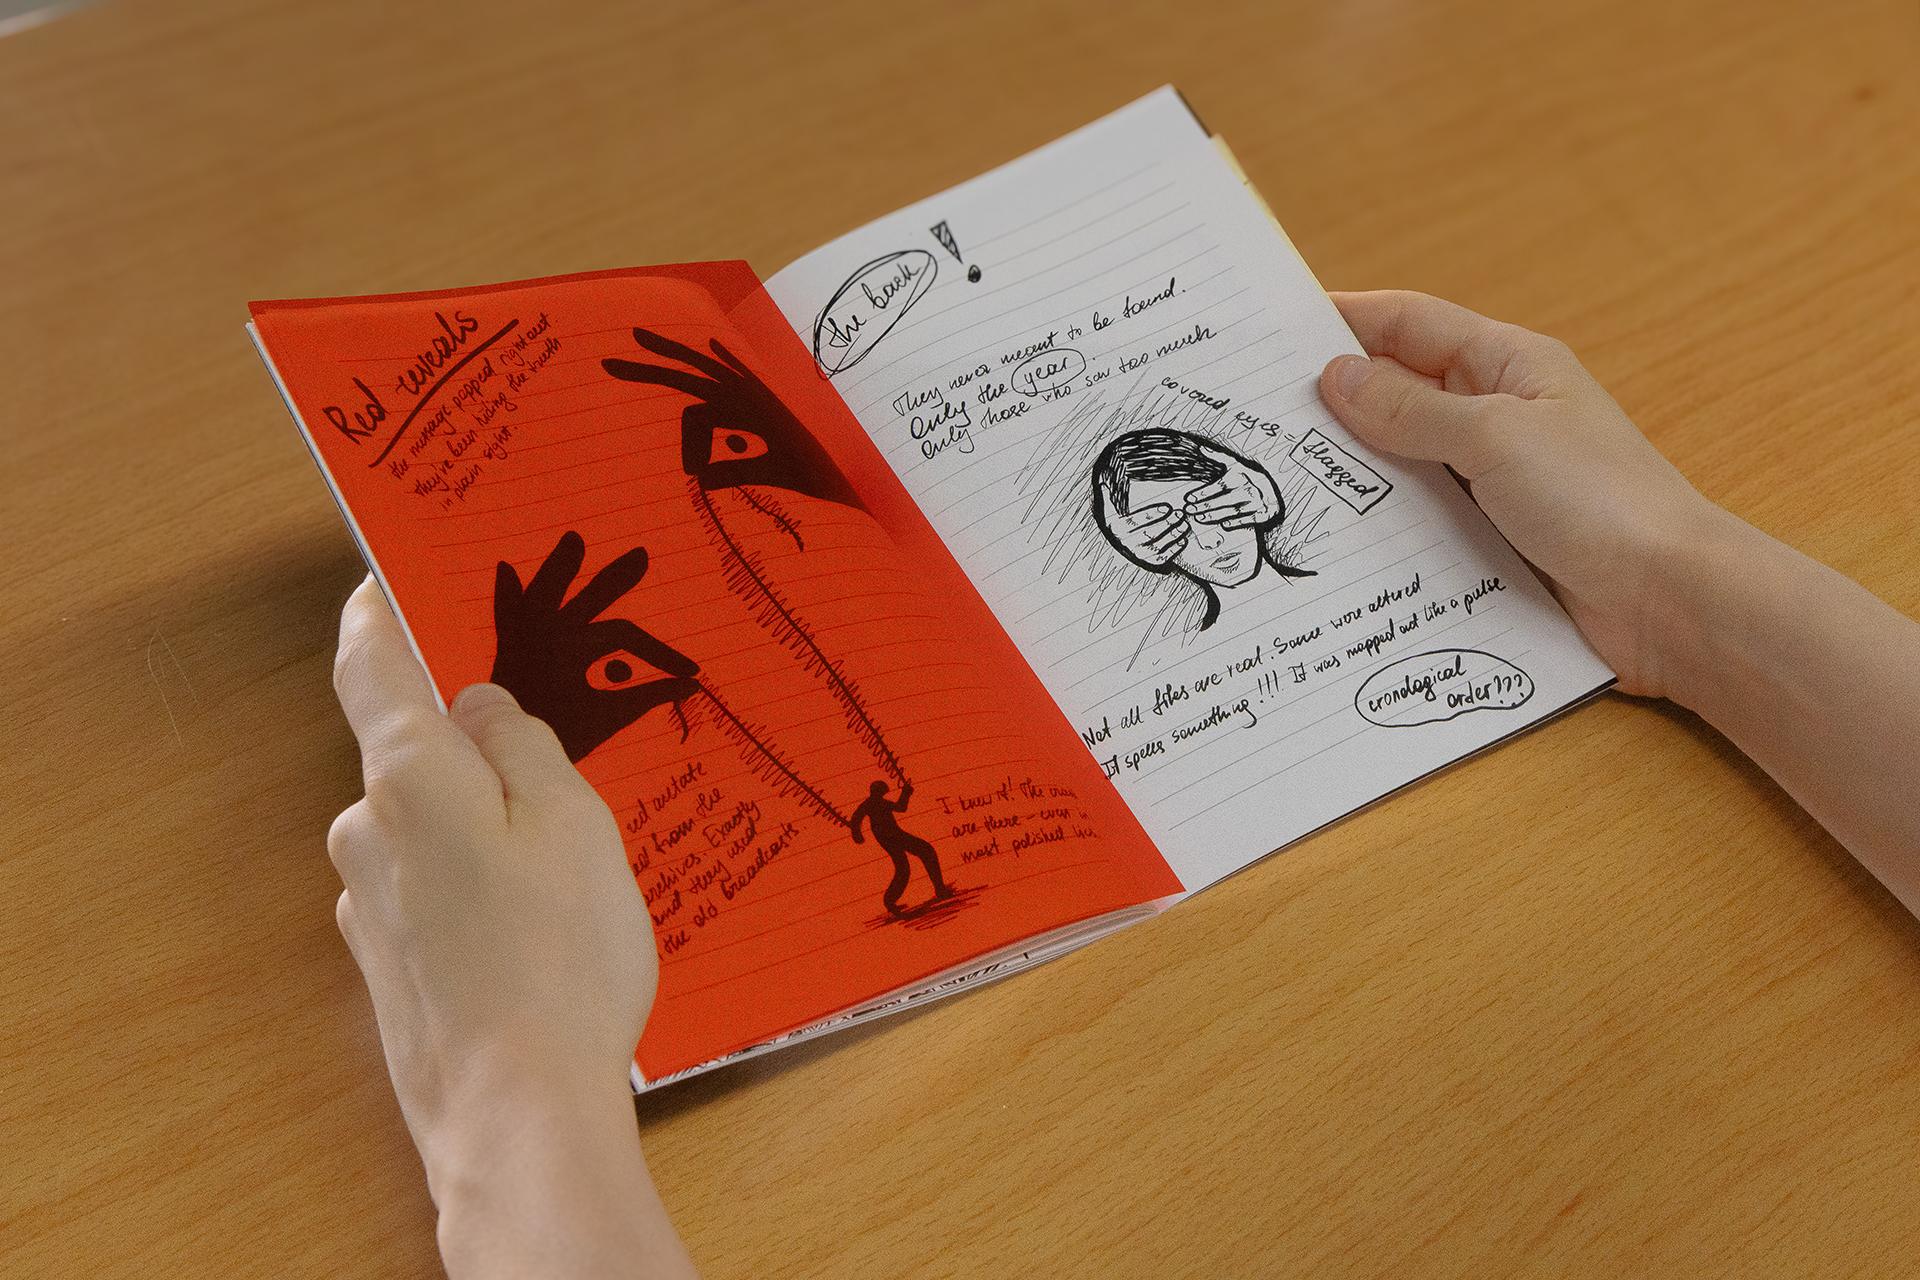 Red reveals
the message popped right out
they've been hiding the truth
in plain sight.
red acetate
from the
archives. Exactly
and they used
the old broadcasts.
I knew it! The
are there - even
most polished lies.
The back!
They never meant to be found.
Only the year.
Only those who saw too much
covered eyes =
flagged
Not all files are real. Some were altered
It spells something!!! It was mapped out like a pulse
cronological
order???